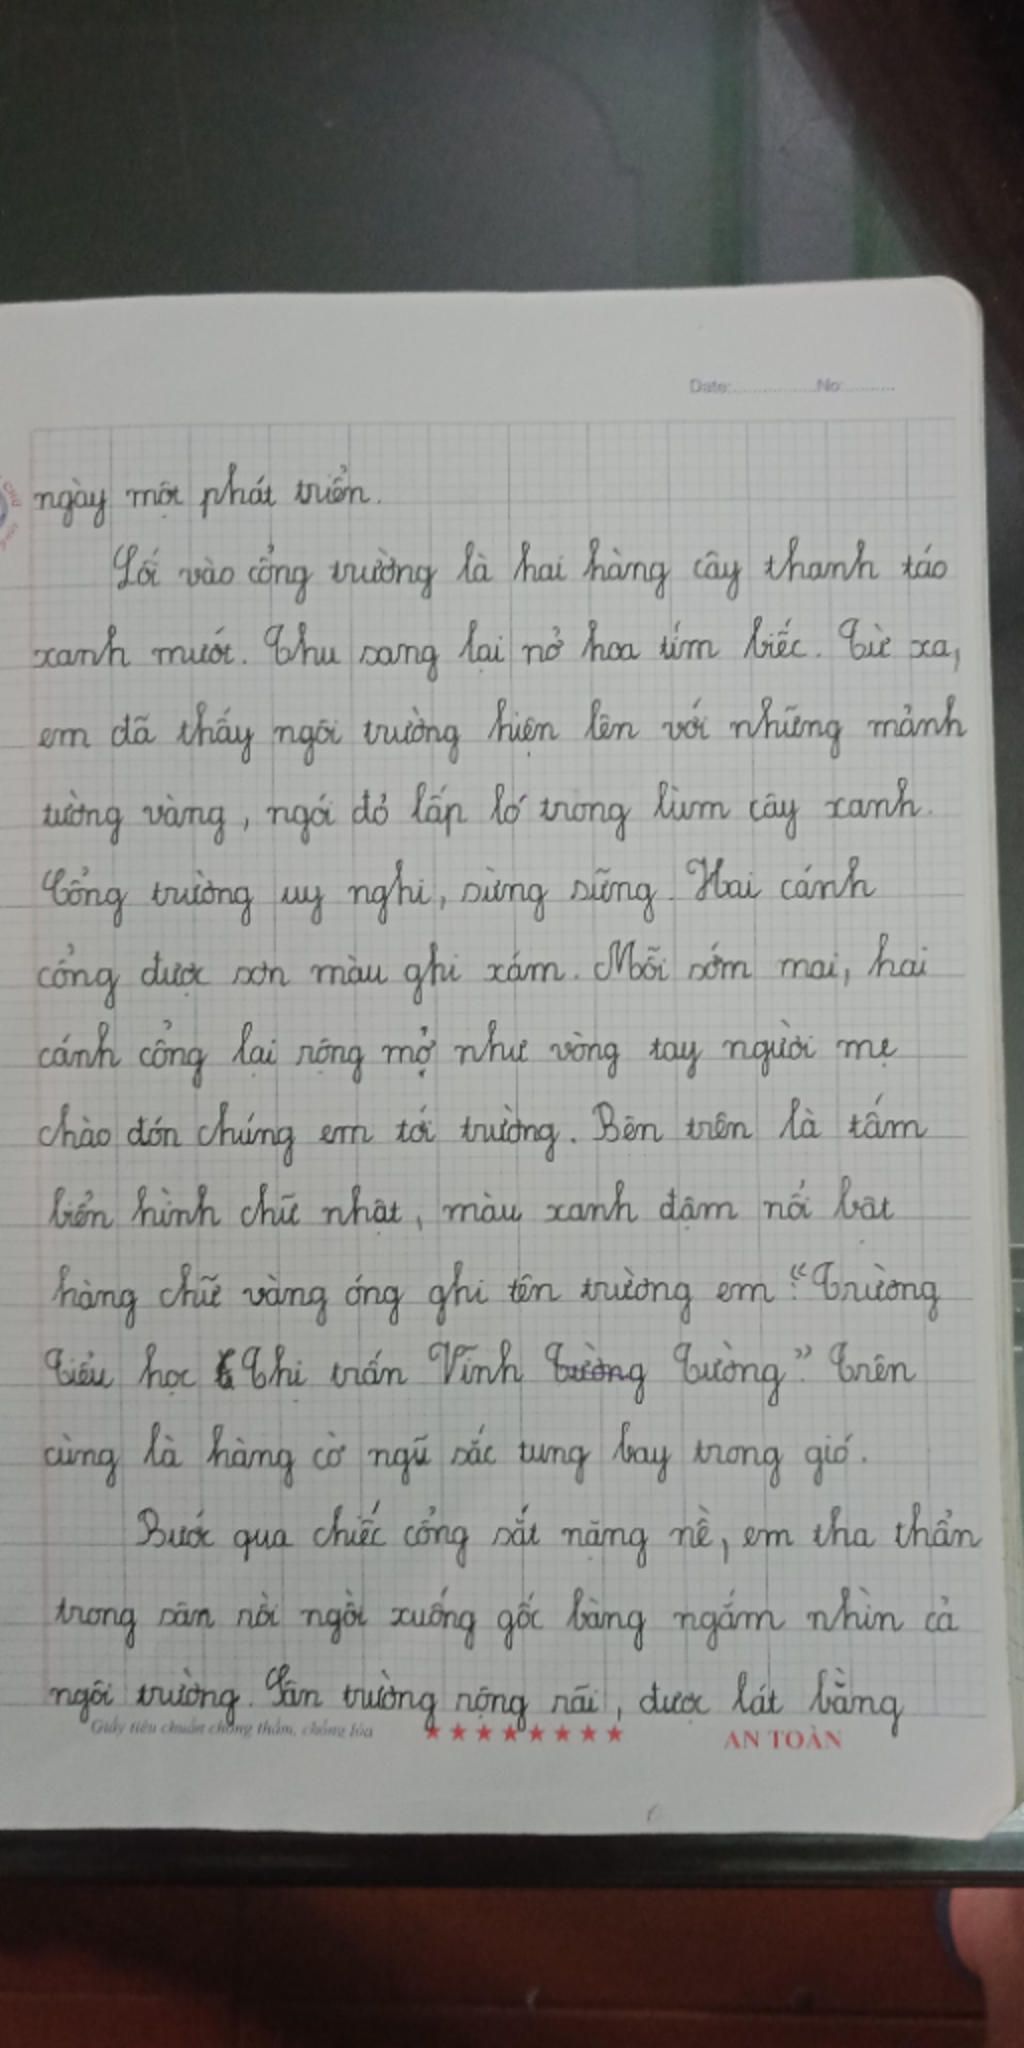 Date:..................No:...........
ngày một phát triển.
Lối vào cổng trường là hai hàng cây thanh táo
xanh mướt. Thu sang lại nở hoa tím biếc. Từ xa,
em đã thấy ngôi trường hiện lên với những mảnh
tường vàng, ngói đỏ lấp ló trong lùm cây xanh.
Cổng trường uy nghi, sừng sững. Hai cánh
cổng được sơn màu ghi xám. Mỗi sớm mai, hai
cánh cổng lại rộng mở như vòng tay người mẹ
chào đón chúng em tới trường. Bên trên là tấm
biển hình chữ nhật, màu xanh đậm nổi bật
hàng chữ vàng óng ghi tên trường em "Trường
Tiểu học Thị trấn Vĩnh Tường Tường". Trên
cùng là hàng cờ ngũ sắc tung bay trong gió.
Bước qua chiếc cổng sắt nặng nề, em tha thẩn
trong sân rồi ngồi xuống gốc bàng ngắm nhìn cả
ngôi trường. Sân trường rộng rãi, được lát bằng
Giấy tiêu chuẩn chống thấm, chống lóa
AN TOÀN